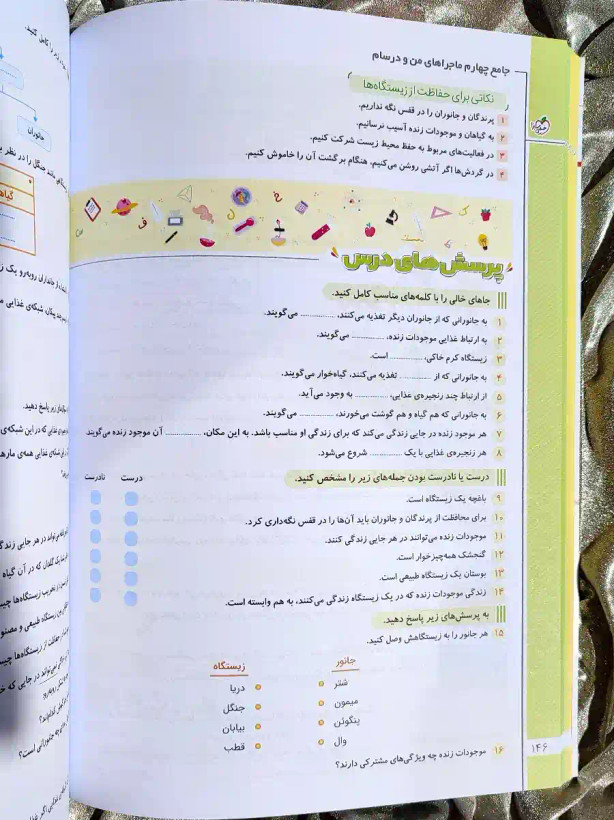 جامع چهارم ماجراهای من و درسام
نکاتی برای حفاظت از زیستگاه‌ها
۱ پرندگان و جانوران را در قفس نگه نداریم.
۲ به گیاهان و موجودات زنده آسیب نرسانیم.
۳ در فعالیت‌های مربوط به حفظ محیط زیست شرکت کنیم.
۴ در گردش‌ها اگر آتشی روشن می‌کنیم، هنگام برگشت آن را خاموش کنیم.
پرسش‌های درس
جاهای خالی را با کلمه‌های مناسب کامل کنید.
۱ به جانورانی که از جانوران دیگر تغذیه می‌کنند، ............ می‌گویند.
۲ به ارتباط غذایی موجودات زنده، ............ می‌گویند.
۳ زیستگاه کرم خاکی، ............ است.
۴ به جانورانی که از ............ تغذیه می‌کنند، گیاه‌خوار می‌گویند.
۵ از ارتباط چند زنجیره‌ی غذایی، ............ به وجود می‌آید.
۶ به جانورانی که هم گیاه و هم گوشت می‌خورند، ............ می‌گویند.
۷ هر موجود زنده در جایی زندگی می‌کند که برای زندگی او مناسب باشد. به این مکان، ............ آن موجود زنده می‌گویند.
۸ هر زنجیره‌ی غذایی با یک ............ شروع می‌شود.
درست یا نادرست بودن جمله‌های زیر را مشخص کنید. درست نادرست
۹ باغچه یک زیستگاه است.
۱۰ برای محافظت از پرندگان و جانوران باید آن‌ها را در قفس نگه‌داری کرد.
۱۱ موجودات زنده می‌توانند در هر جایی زندگی کنند.
۱۲ گنجشک همه‌چیزخوار است.
۱۳ بوستان یک زیستگاه طبیعی است.
۱۴ زندگی موجودات زنده که در یک زیستگاه زندگی می‌کنند، به هم وابسته است.
به پرسش‌های زیر پاسخ دهید.
۱۵ هر جانور را به زیستگاهش وصل کنید.
جانور زیستگاه
شتر دریا
میمون جنگل
پنگوئن بیابان
وال قطب
۱۶ موجودات زنده چه ویژگی‌های مشترکی دارند؟
۱۴۶
جانوران